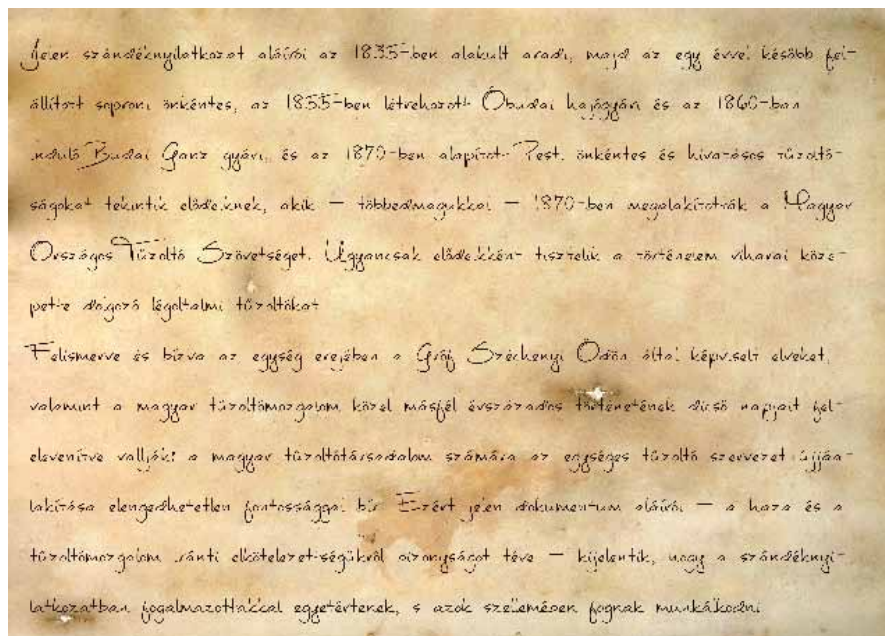 Jelen szándéknyilatkozat aláírói az 1835-ben alakult aradi, majd az egy évvel később fel-
állított soproni önkéntes, az 1855-ben létrehozott Óbudai hajógyári és az 1860-ban
induló Budai Ganz gyári, és az 1870-ben alapított Pesti önkéntes és hivatásos tűzoltó-
ságokat tekintik elődeiknek, akik – többedmagukkal – 1870-ben megalakították a Magyar
Országos Tűzoltó Szövetséget. Ugyancsak elődeikként tisztelik a történelem viharai köze-
pette dolgozó légoltalmi tűzoltókat.
Felismerve és bízva az egység erejében a Gróf Széchenyi Ödön által képviselt elveket,
valamint a magyar tűzoltómozgalom közel másfél évszázados történetének dicső napjait fel-
elevenítve vallják: a magyar tűzoltótársadalom számára az egységes tűzoltó szervezet újjáa-
lakítása elengedhetetlen fontossággal bír. Ezért jelen dokumentum aláírói – a haza és a
tűzoltómozgalom iránti elkötelezettségükről bizonyságot téve – kijelentik, hogy a szándéknyi-
latkozatban fogalmazottakkal egyetértenek, s azok szellemében fognak munkálkodni.